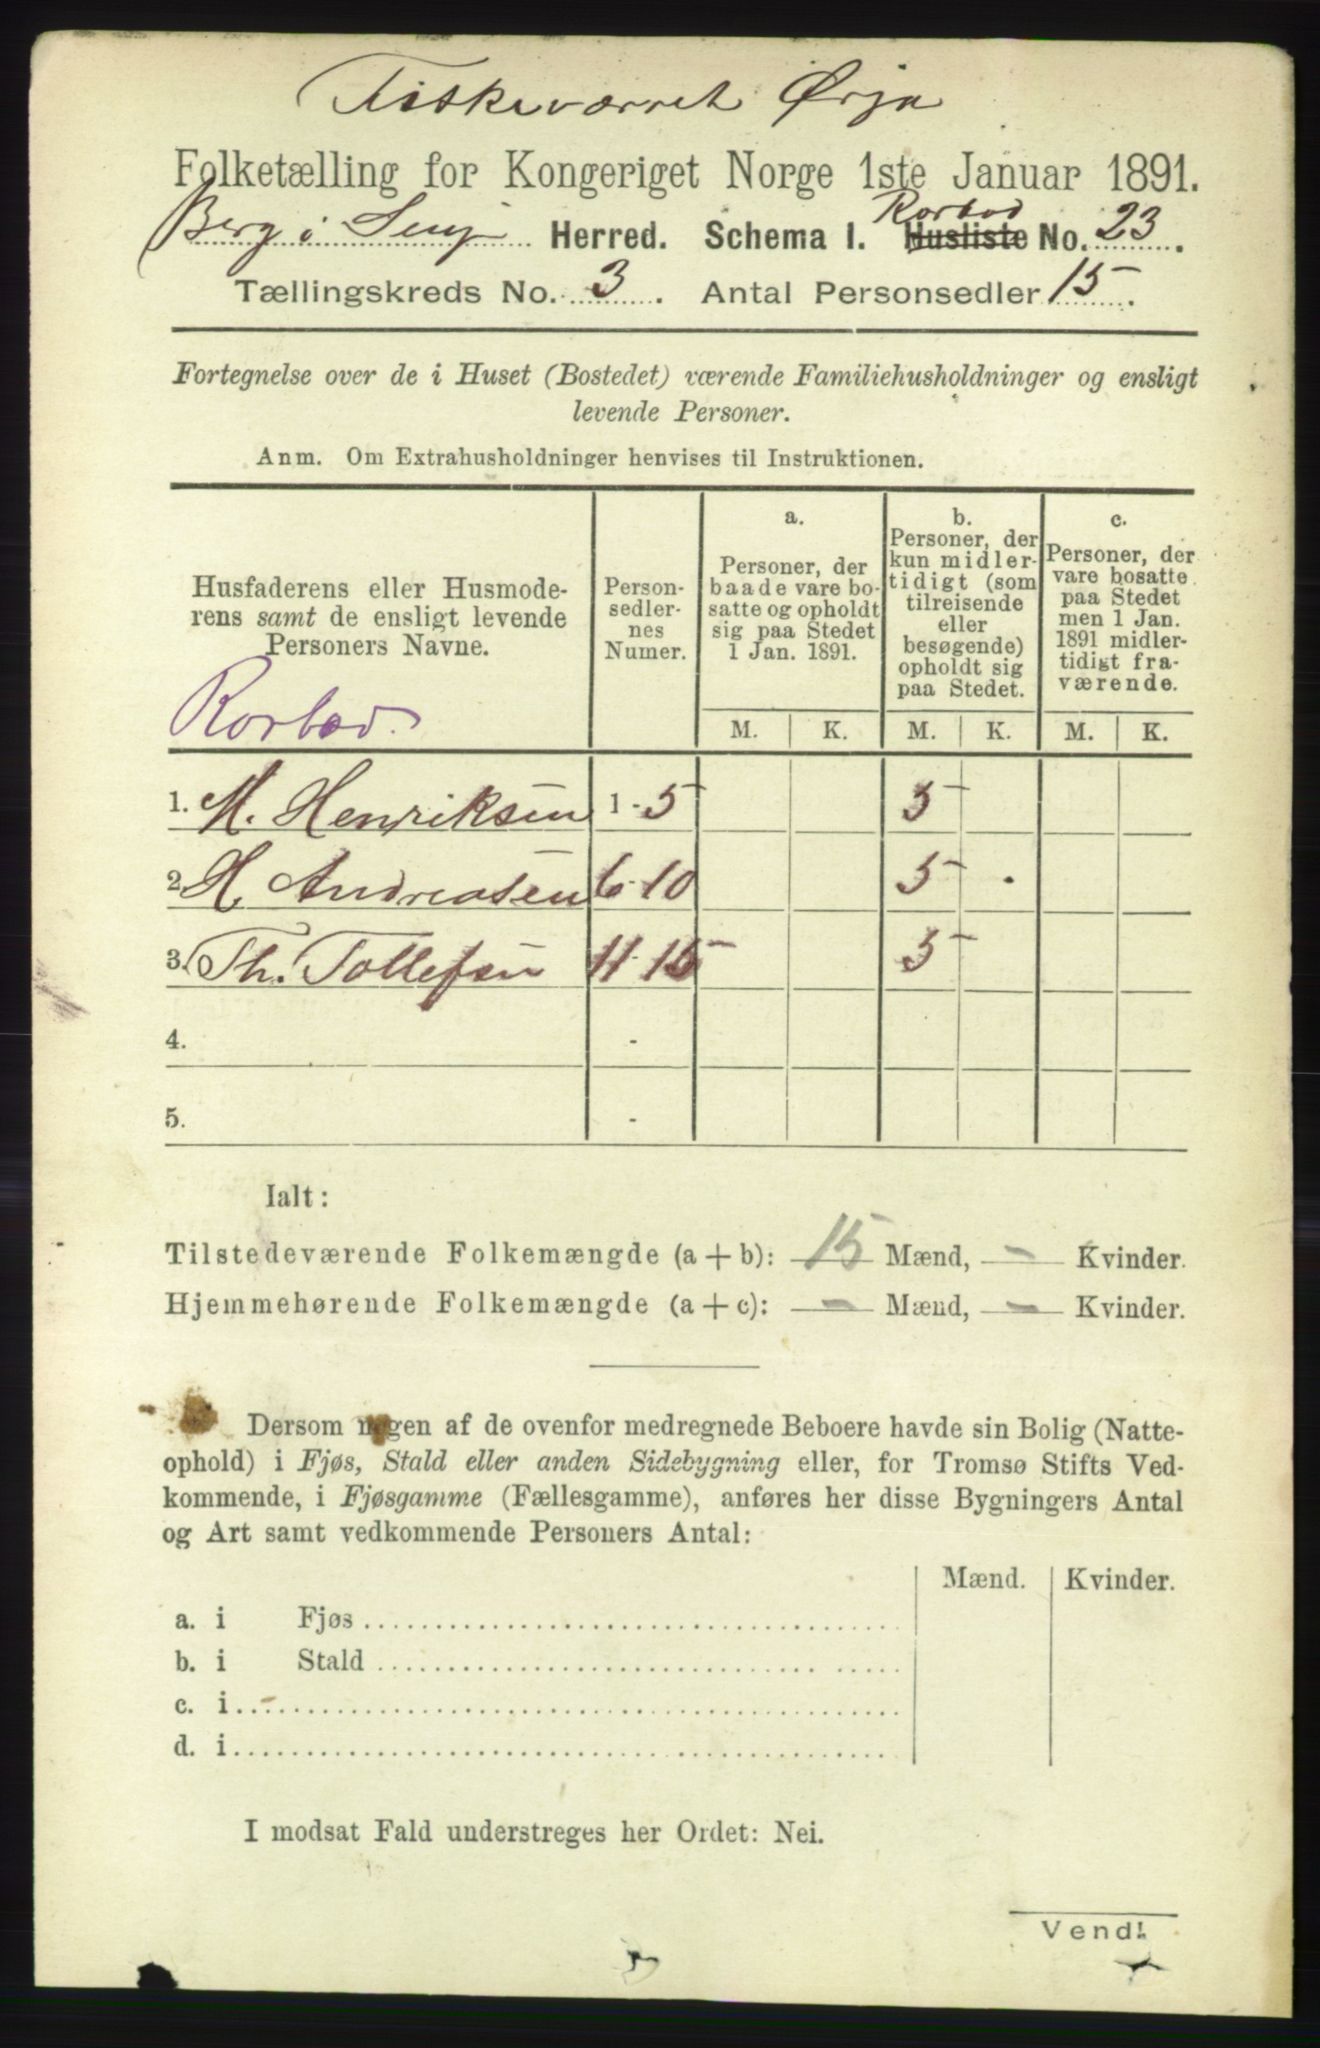 Fiskeværret Ørja
Folketælling for Kongeriget Norge 1ste Januar 1891.
Berg i Senj Herred. Schema I. Husliste Rorbod No. 23.
Tællingskreds No. 3. Antal Personsedler 15.
Fortegnelse over de i Huset (Bostedet) værende Familiehusholdninger og ensligt
levende Personer.
Anm. Om Extrahusholdninger henvises til Instruktionen.
Husfaderens eller Husmode-
rens samt de ensligt levende
Personers Navne.
Rorbod.
Person-
sedler-
nes
Numer.
a.
Personer, der
baade vare bo-
satte og opholdt
sig paa Stedet
1 Jan. 1891.
b.
Personer, der
kun midler-
tidigt (som
tilreisende
eller
besøgende)
opholdt sig
paa Stedet.
c.
Personer, der
vare bosatte
paa Stedet
men 1 Jan.
1891 midler-
tidigt fra-
værende.
M. K. M. K. M. K.
1. M. Henriksen 1-5 5
2. H. Andreasen 6-10 5 .
3. Th. Tollefsen 11-15 5
4. -
5. -
Ialt:
Tilstedeværende Folkemængde (a + b): 15 Mænd, - Kvinder.
Hjemmehørende Folkemængde (a + c): - Mænd, - Kvinder.
Dersom nogen af de ovenfor medregnede Beboere havde sin Bolig (Natte-
ophold) i Fjøs, Stald eller anden Sidebygning eller, for Tromsø Stifts Ved-
kommende, i Fjøsgamme (Fællesgamme), anføres her disse Bygningers Antal
og Art samt vedkommende Personers Antal:
Mænd. Kvinder.
a. i Fjøs
b. i Stald
c. i
d. i
I modsat Fald understreges her Ordet: Nei.
Vend!